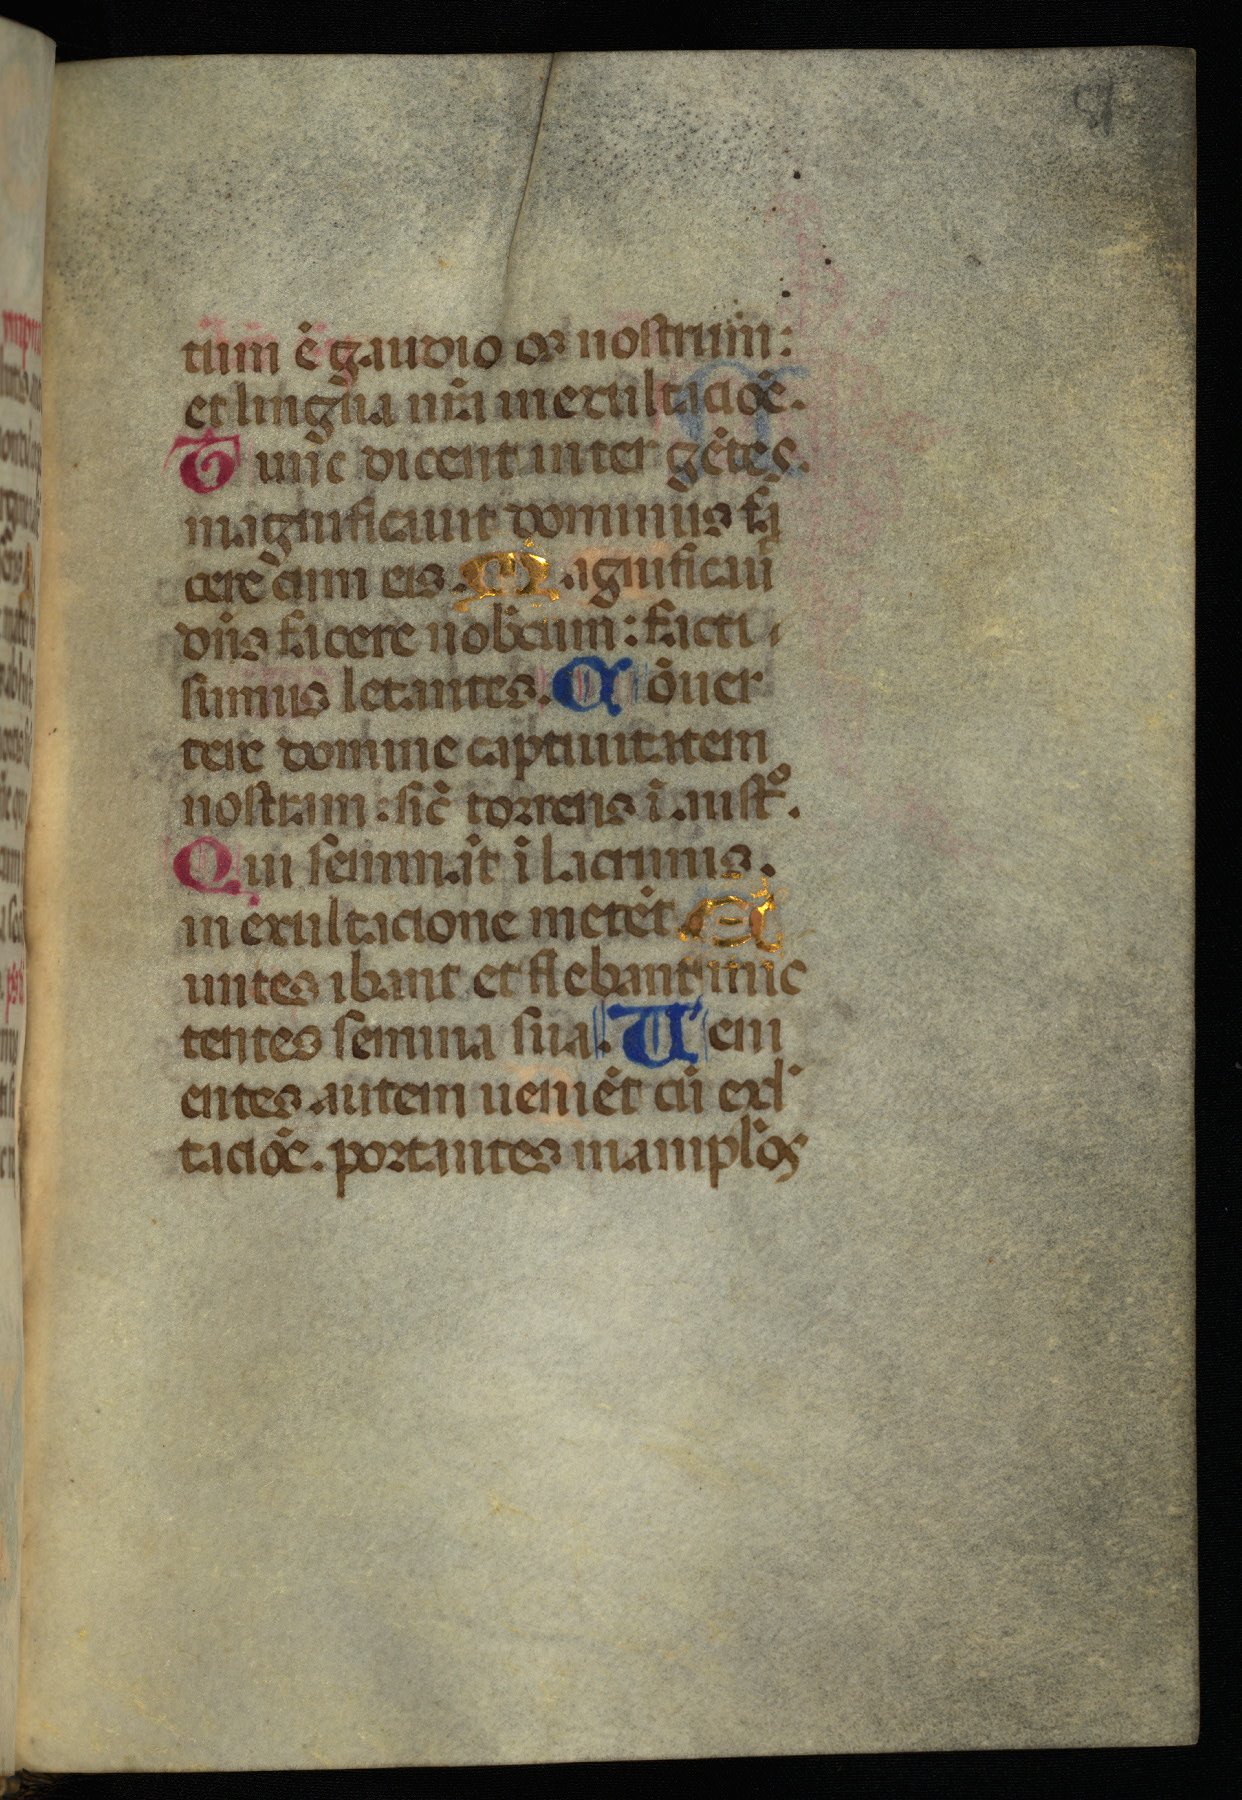 tum ē gaudio os nostrum:
et lingua nr̄a in exultacioē.
Tūnc dicent inter gētes.
magnificauit dominus fa
cere cum eis. Magnificaui
dn̄s facere nobcum: facti
sumus letantes. Cōuer
tere domine captiuitatem
nostram: sic̄ torrens ī austº.
Qui semināt ī lacrimis.
in exultacione metēt. E
untes ibant et flebant mic
tentes semina sua. Ueni
entes autem ueniēt cū exl
tacioē. portantes maniplos